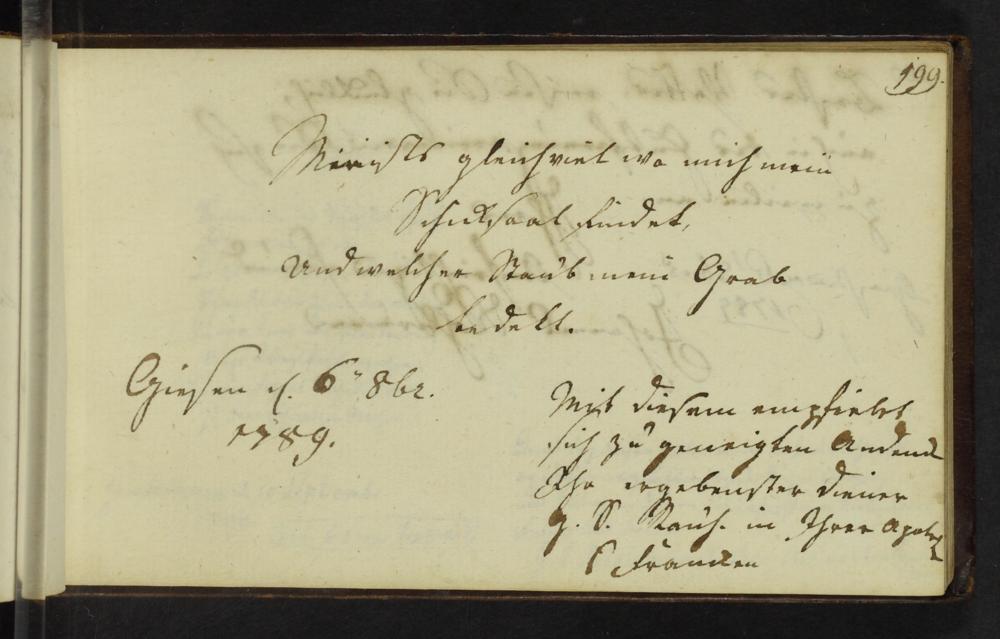 199.
Mir ists gleichviel wo mich mein
Schicksaal findet,
Und welcher Staub mein Grab
bedekt.
Giesen d. 6" 8br.
1789.
Mit diesem empfielet
sich zu geneigten Andenk
Ihr ergebenster diener
S. Rauh. in Ihrer Apotek
Francken